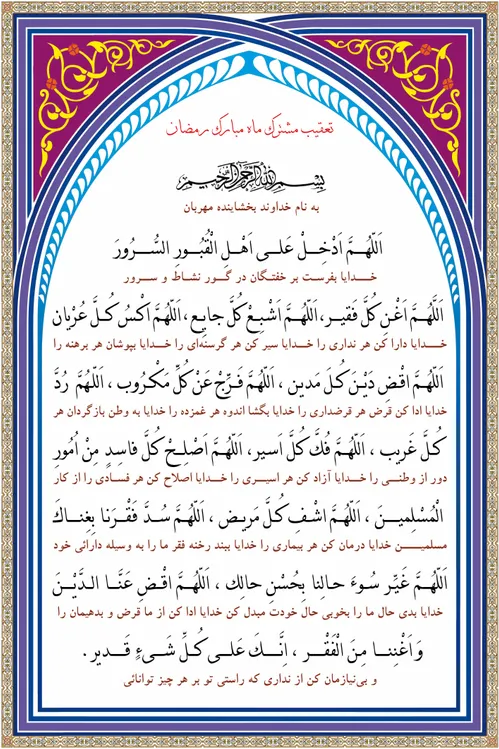 تعقیب مشترک ماه مبارک رمضان
بِسْمِ اللهِ الرَّحْمٰنِ الرَّحیمِ
به نام خداوند بخشاینده مهربان
اَللّهُمَّ اَدْخِلْ عَلی اَهْلِ الْقُبُورِ السُّرُورَ
خدایا بفرست بر خفتگان در گور نشاط و سرور
اَللّهُمَّ اَغْنِ کُلَّ فَقیرٍ، اَللّهُمَّ اَشْبِعْ کُلَّ جایِعٍ، اَللّهُمَّ اکْسُ کُلَّ عُرْیانٍ
خدایا دارا کن هر نداری را خدایا سیر کن هر گرسنه‌ای را خدایا بپوشان هر برهنه را
اَللّهُمَّ اقْضِ دَیْنَ کُلِّ مَدینٍ ، اَللّهُمَّ فَرِّجْ عَنْ کُلِّ مَکْرُوبٍ ، اَللّهُمَّ رُدَّ
خدایا ادا کن قرض هر قرضداری را خدایا بگشا اندوه هر غمزده را خدایا به وطن بازگردان هر
کُلَّ غَریبٍ ، اَللّهُمَّ فُکَّ کُلَّ اَسیرٍ، اَللّهُمَّ اَصْلِحْ کُلَّ فاسِدٍ مِنْ اُمُورِ
دور از وطنی را خدایا آزاد کن هر اسیری را خدایا اصلاح کن هر فسادی را از کار
الْمُسْلِمینَ ، اَللّهُمَّ اشْفِ کُلَّ مَریضٍ ، اَللّهُمَّ سُدَّ فَقْرَنا بِغِناکَ
مسلمین خدایا درمان کن هر بیماری را خدایا ببند رخنه فقر ما را به وسیله دارائی خود
اَللّهُمَّ غَیِّرْ سُوءَ حالِنا بِحُسْنِ حالِکَ ، اَللّهُمَّ اقْضِ عَنَّا الدَّیْنَ
خدایا بدی حال ما را بخوبی حال خودت مبدل کن خدایا ادا کن از ما قرض و بدهیمان را
وَ اَغْنِنا مِنَ الْفَقْرِ ، اِنَّکَ عَلی کُلِّ شَیءٍ قَدیر .
و بی‌نیازمان کن از نداری که راستی تو بر هر چیز توانائی